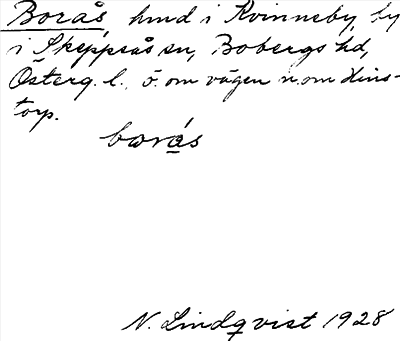 Borås, hmd i Kvinneby, by
i Skeppsås sn, Bobergs hd,
Österg. l., ö. om vägen n. om dins-
torp.
borás
N. Lindqvist 1928